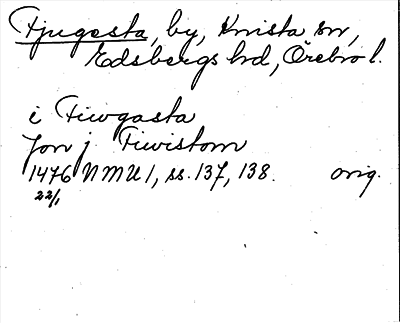 Fjugesta, by, Knista sn,
Edsbergs hd, Örebro l.
i Fiwgasta
Jon j Fiwistom
1476 NMU 1, ss. 137, 138. orig.
22/1